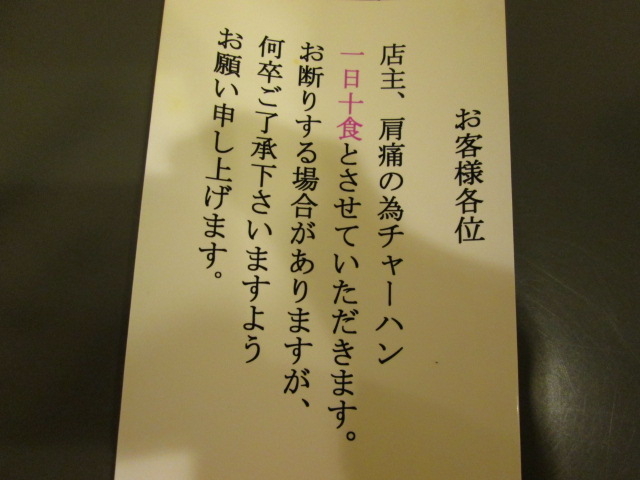 お客様各位
店主、肩痛の為チャーハン
一日十食とさせていただきます。
お断りする場合がありますが、
何卒ご了承下さいますよう
お願い申し上げます。